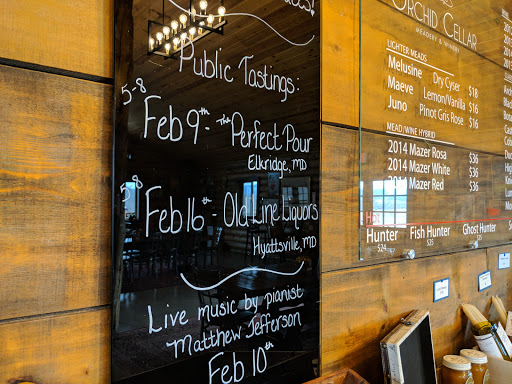 Public Tastings:
5-8
Feb 9th - The Perfect Pour
Elkridge, MD
5-8
Feb 16th - Old Line Liquors
Hyattsville, MD
Live music by pianist
Matthew Jefferson
Feb 10th
Orchid Cellar
MEADERY & WINERY
LIGHTER MEADS
Melusine Dry Cyser $18
Maeve Lemon/Vanilla $16
Juno Pinot Gris Rose $16
MEAD/WINE HYBRID
2014 Mazer Rosa $36
2014 Mazer White $36
2014 Mazer Red $36
Hunter Fish Hunter Ghost Hunter
$24 $25 $25